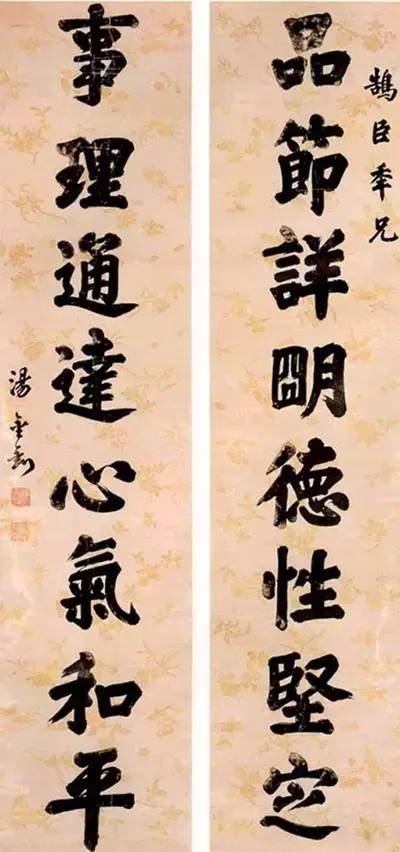 鵠臣秊兄
品節詳朙德性堅定
事理通達心氣和平
湯金釗